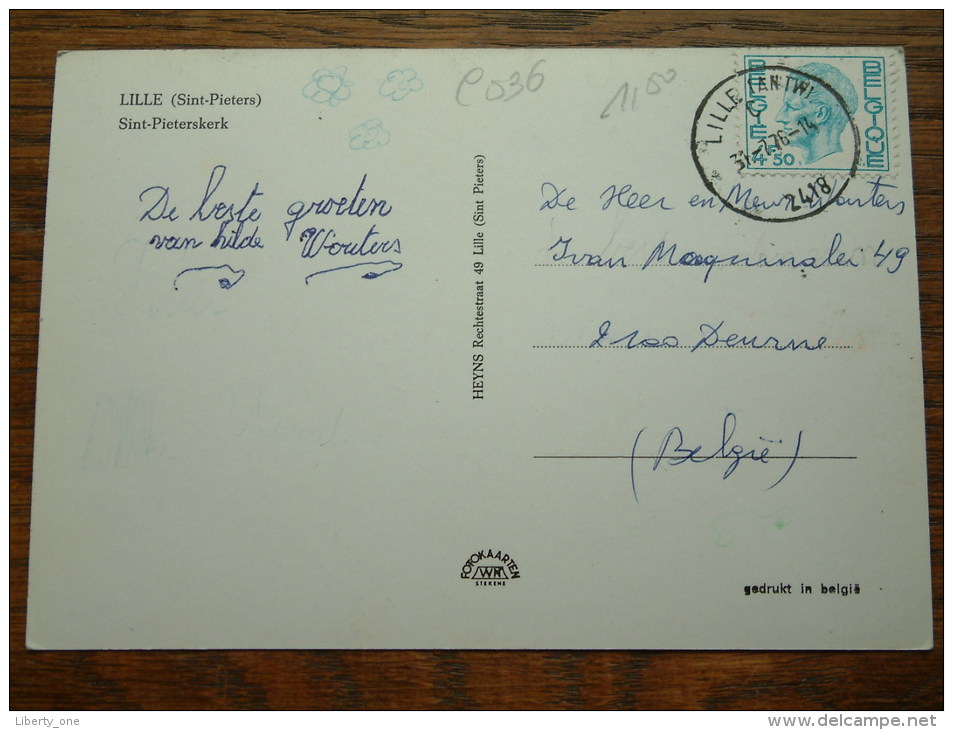 LILLE (Sint-Pieters)
Sint-Pieterskerk
C 036
11 50
De beste groeten
van hilde Wouters
HEYNS Rechtestraat 49 Lille (Sint Pieters)
BELGIE
BELGIQUE
4F50
LILLE (ANTW)
31-7.76-14
2418
De Heer en Mevr. Wouters
Ivan 49
2100 Deurne
(België)
FOTOKAARTEN
STEKENE
gedrukt in belgië
Liberty_one
www.delcampe.net